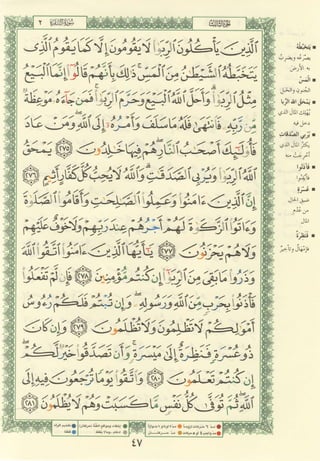 الجزء الثالث
سورة البقرة ٢
ٱلَّذِينَ يَأْكُلُونَ ٱلرِّبَوٰا۟ لَا يَقُومُونَ إِلَّا كَمَا يَقُومُ ٱلَّذِى
يَتَخَبَّطُهُ ٱلشَّيْطَٰنُ مِنَ ٱلْمَسِّ ذَٰلِكَ بِأَنَّهُمْ قَالُوٓا۟ إِنَّمَا ٱلْبَيْعُ
مِثْلُ ٱلرِّبَوٰا۟ وَأَحَلَّ ٱللَّهُ ٱلْبَيْعَ وَحَرَّمَ ٱلرِّبَوٰا۟ فَمَن جَآءَهُۥ مَوْعِظَةٌ
مِّن رَّبِّهِۦ فَٱنتَهَىٰ فَلَهُۥ مَا سَلَفَ وَأَمْرُهُۥٓ إِلَى ٱللَّهِ وَمَنْ عَادَ
فَأُو۟لَٰٓئِكَ أَصْحَٰبُ ٱلنَّارِ هُمْ فِيهَا خَٰلِدُونَ ٢٧٥ يَمْحَقُ
ٱللَّهُ ٱلرِّبَوٰا۟ وَيُرْبِى ٱلصَّدَقَٰتِ وَٱللَّهُ لَا يُحِبُّ كُلَّ كَفَّارٍ أَثِيمٍ ٢٧٦
إِنَّ ٱلَّذِينَ ءَامَنُوا۟ وَعَمِلُوا۟ ٱلصَّٰلِحَٰتِ وَأَقَامُوا۟ ٱلصَّلَوٰةَ
وَءَاتَوُا۟ ٱلزَّكَوٰةَ لَهُمْ أَجْرُهُمْ عِندَ رَبِّهِمْ وَلَا خَوْفٌ عَلَيْهِمْ
وَلَا هُمْ يَحْزَنُونَ ٢٧٧ يَٰٓأَيُّهَا ٱلَّذِينَ ءَامَنُوا۟ ٱتَّقُوا۟ ٱللَّهَ
وَذَرُوا۟ مَا بَقِىَ مِنَ ٱلرِّبَوٰٓا۟ إِن كُنتُم مُّؤْمِنِينَ ٢٧٨ فَإِن لَّمْ تَفْعَلُوا۟
فَأْذَنُوا۟ بِحَرْبٍ مِّنَ ٱللَّهِ وَرَسُولِهِۦ وَإِن تُبْتُمْ فَلَكُمْ رُءُوسُ
أَمْوَٰلِكُمْ لَا تَظْلِمُونَ وَلَا تُظْلَمُونَ ٢٧٩ وَإِن كَانَ
ذُو عُسْرَةٍ فَنَظِرَةٌ إِلَىٰ مَيْسَرَةٍ وَأَن تَصَدَّقُوا۟ خَيْرٌ لَّكُمْ
إِن كُنتُمْ تَعْلَمُونَ ٢٨٠ وَٱتَّقُوا۟ يَوْمًا تُرْجَعُونَ فِيهِ إِلَى
ٱللَّهِ ثُمَّ تُوَفَّىٰ كُلُّ نَفْسٍ مَّا كَسَبَتْ وَهُمْ لَا يُظْلَمُونَ ٢٨١
يتخبطه
يصرعه ويضرب
به الأرض
المس
الجنون والخبل
يمحق الله الربا
يهلك المال الذي
دخل فيه
يربي الصدقات
يكثر المال الذي
أخرجت منه
فأذنوا
فأيقنوا
عسرة
ضيق الحال
من عدم
المال
فنظرة
فإمهال وتأخير
٤٧